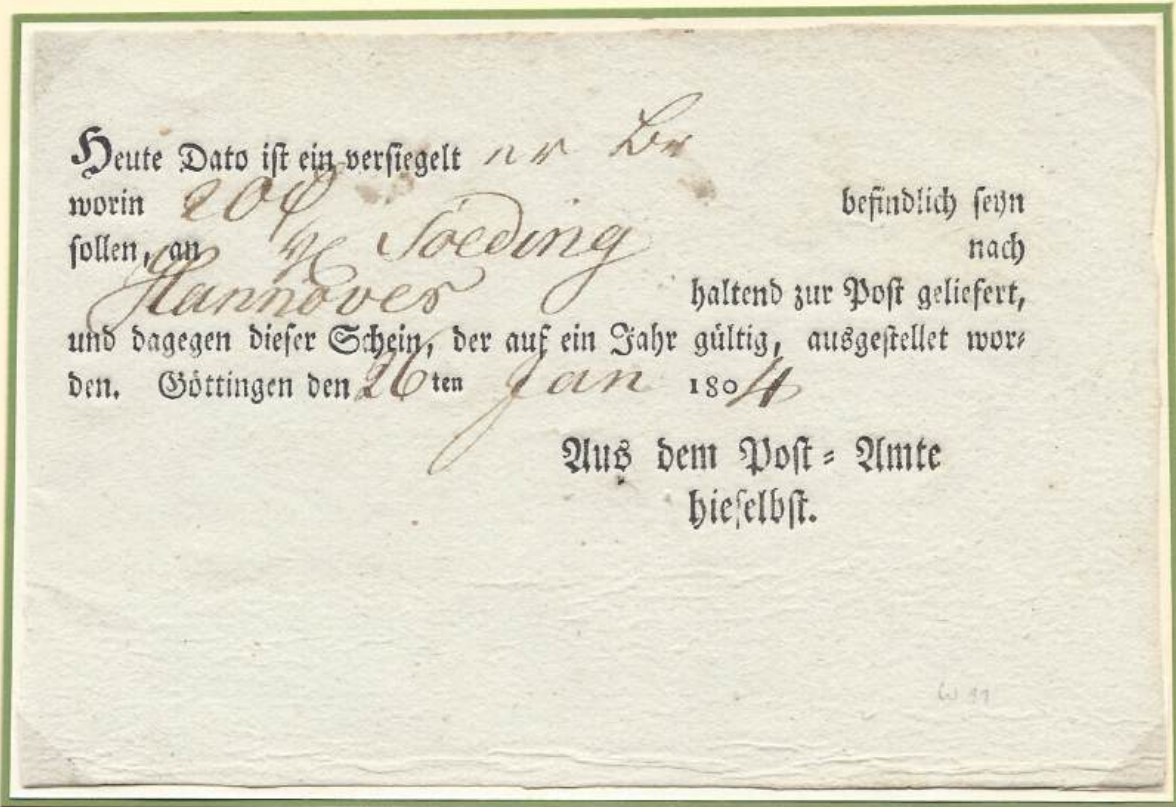 Heute Dato ist ein versiegelt er Br
worin 20 befindlich seyn
sollen, an Soeding nach
Hannover haltend zur Post geliefert,
und dagegen dieser Schein, der auf ein Jahr gültig, ausgestellet wor⸗
den. Göttingen den 26ten Jan 1804
Aus dem Post⸗Amte
hieselbst.